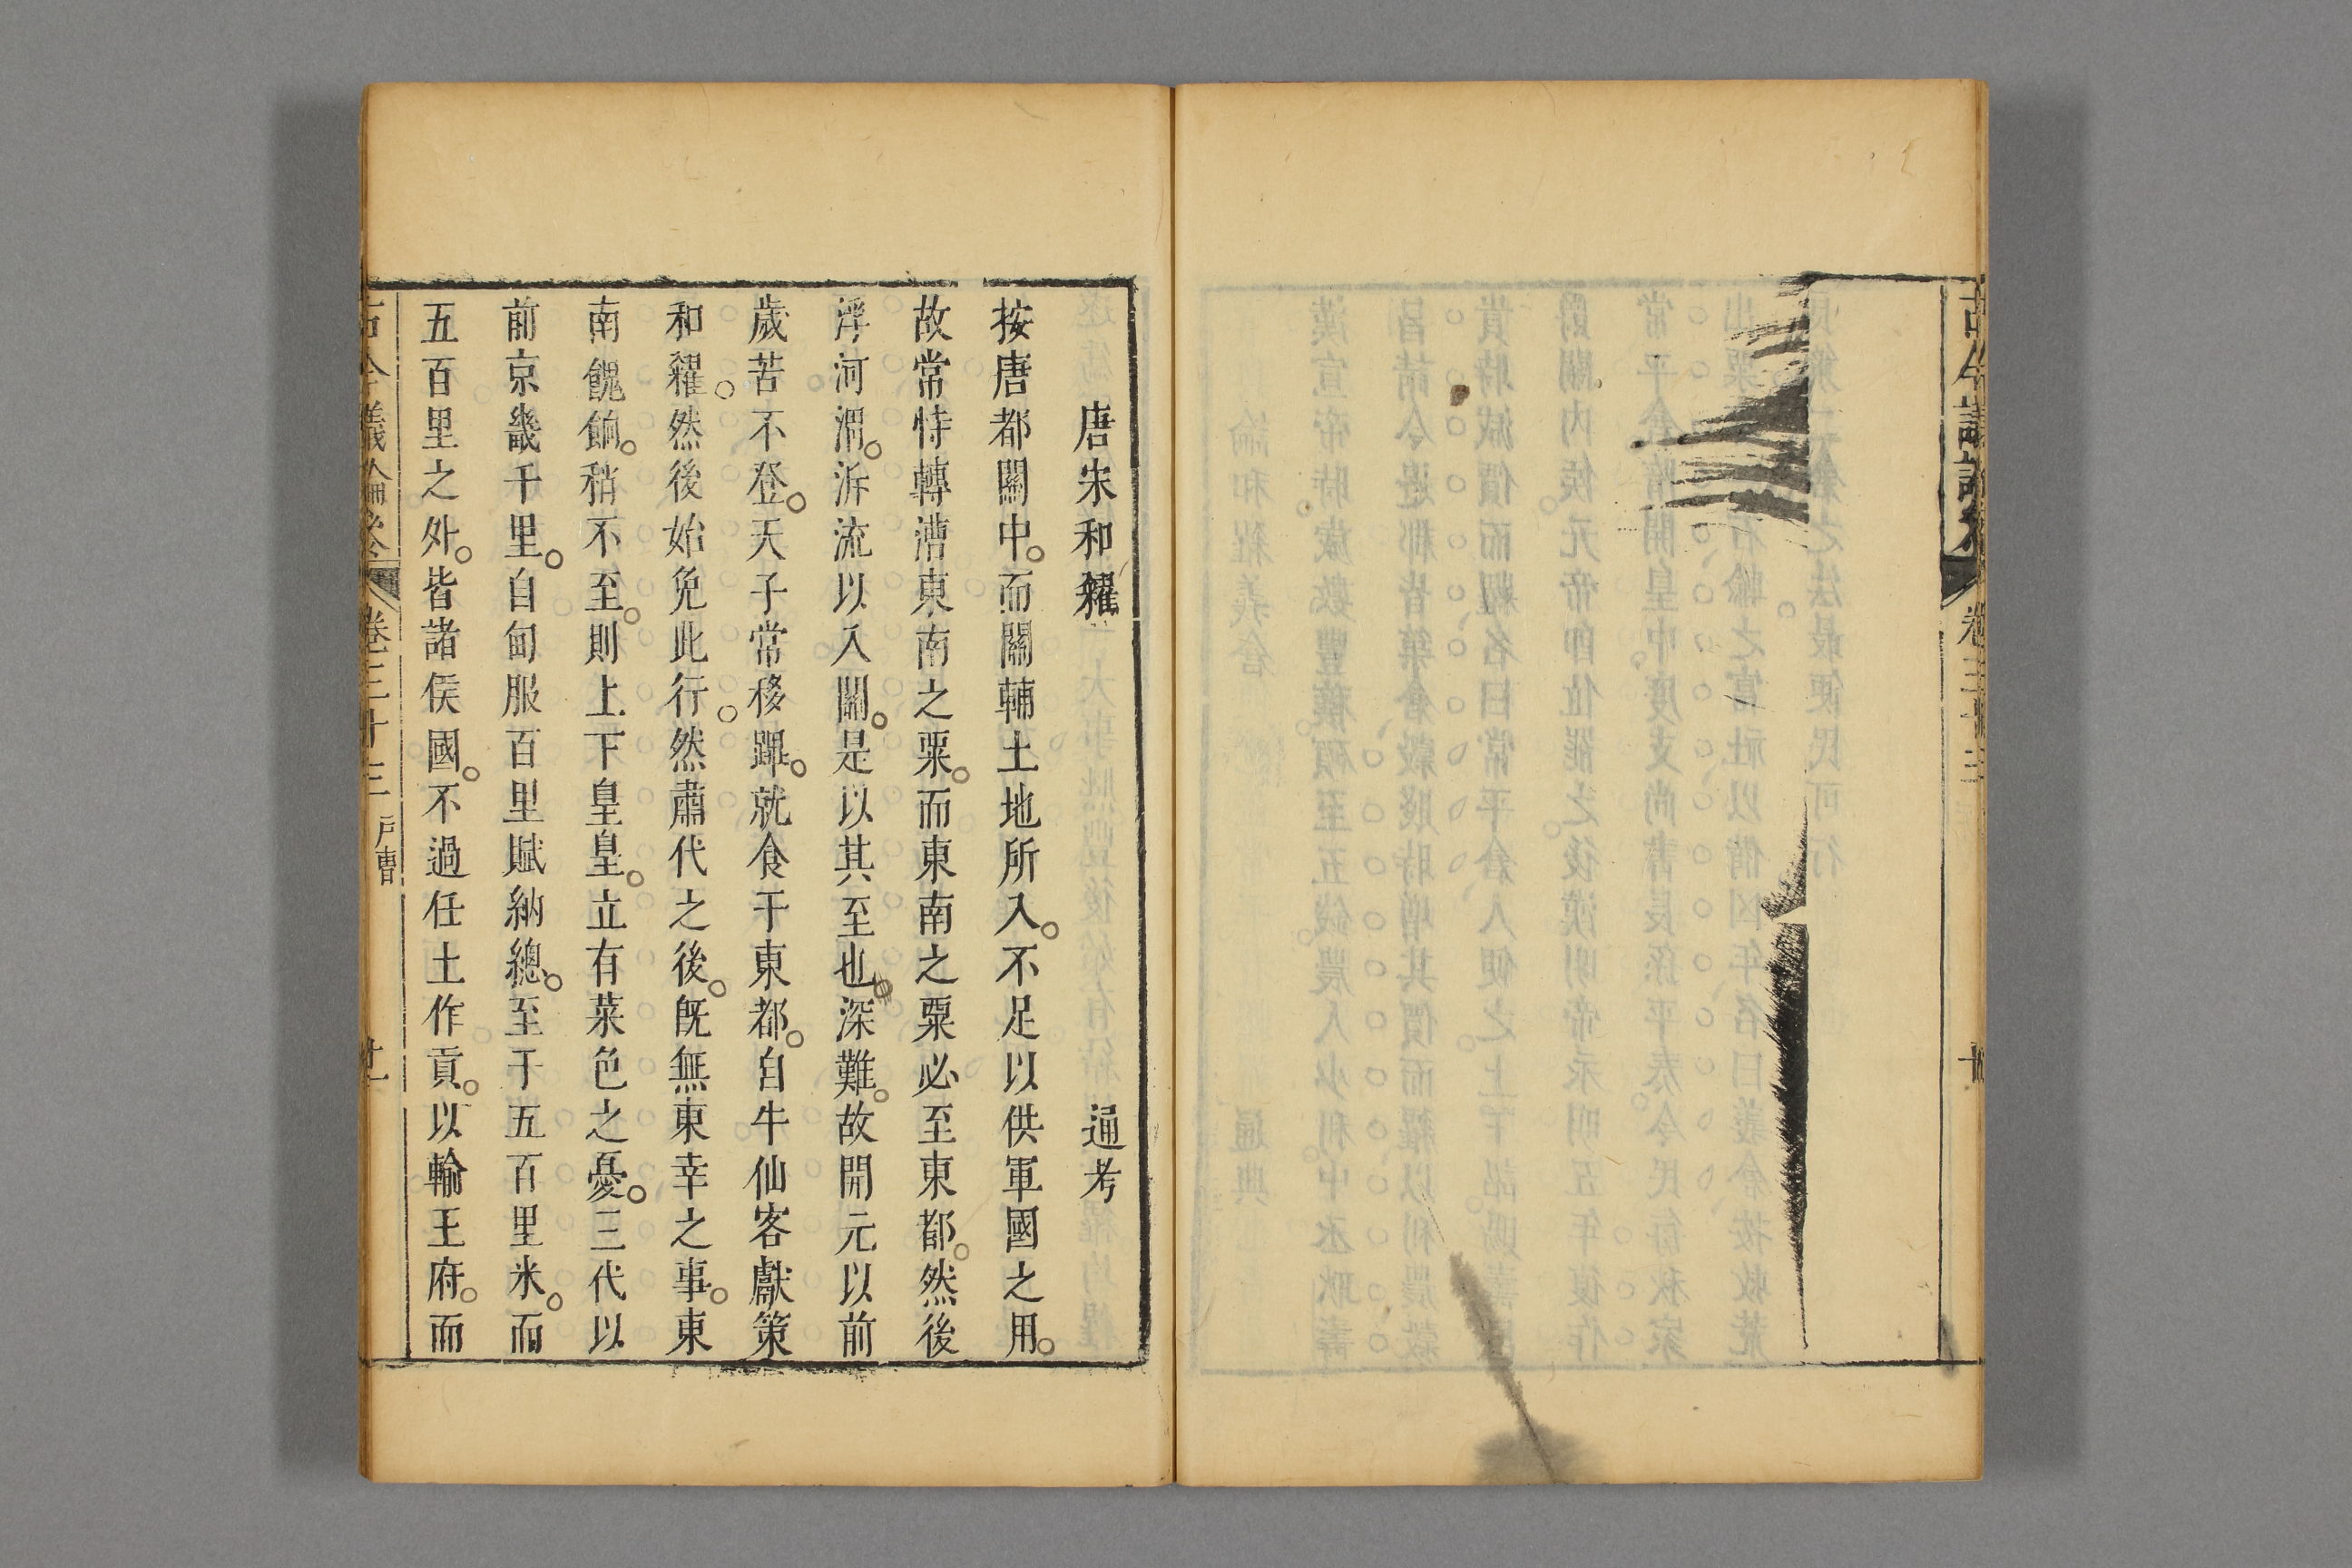 古今議論參 卷三十三
唐宋和糴 通考
按唐都關中。而關輔土地所入。不足以供軍國之用。
故常恃轉漕東南之粟。而東南之粟必至東都。然後
浮河渭。泝流以入關。是以其至也深難。故開元以前
歲苦不登。天子常移蹕。就食于東都。自牛仙客獻策
和糴。然後始免此行。然肅代之後。旣無東幸之事。東
南餽餉。稍不至。則上下皇皇。立有菜色之憂。三代以
前京畿千里。自甸服百里賦納總。至于五百里米。而
五百里之外。皆諸侯國。不過任土作貢。以輸王府。而
古今議論參 卷三十三 戶曹 廿一